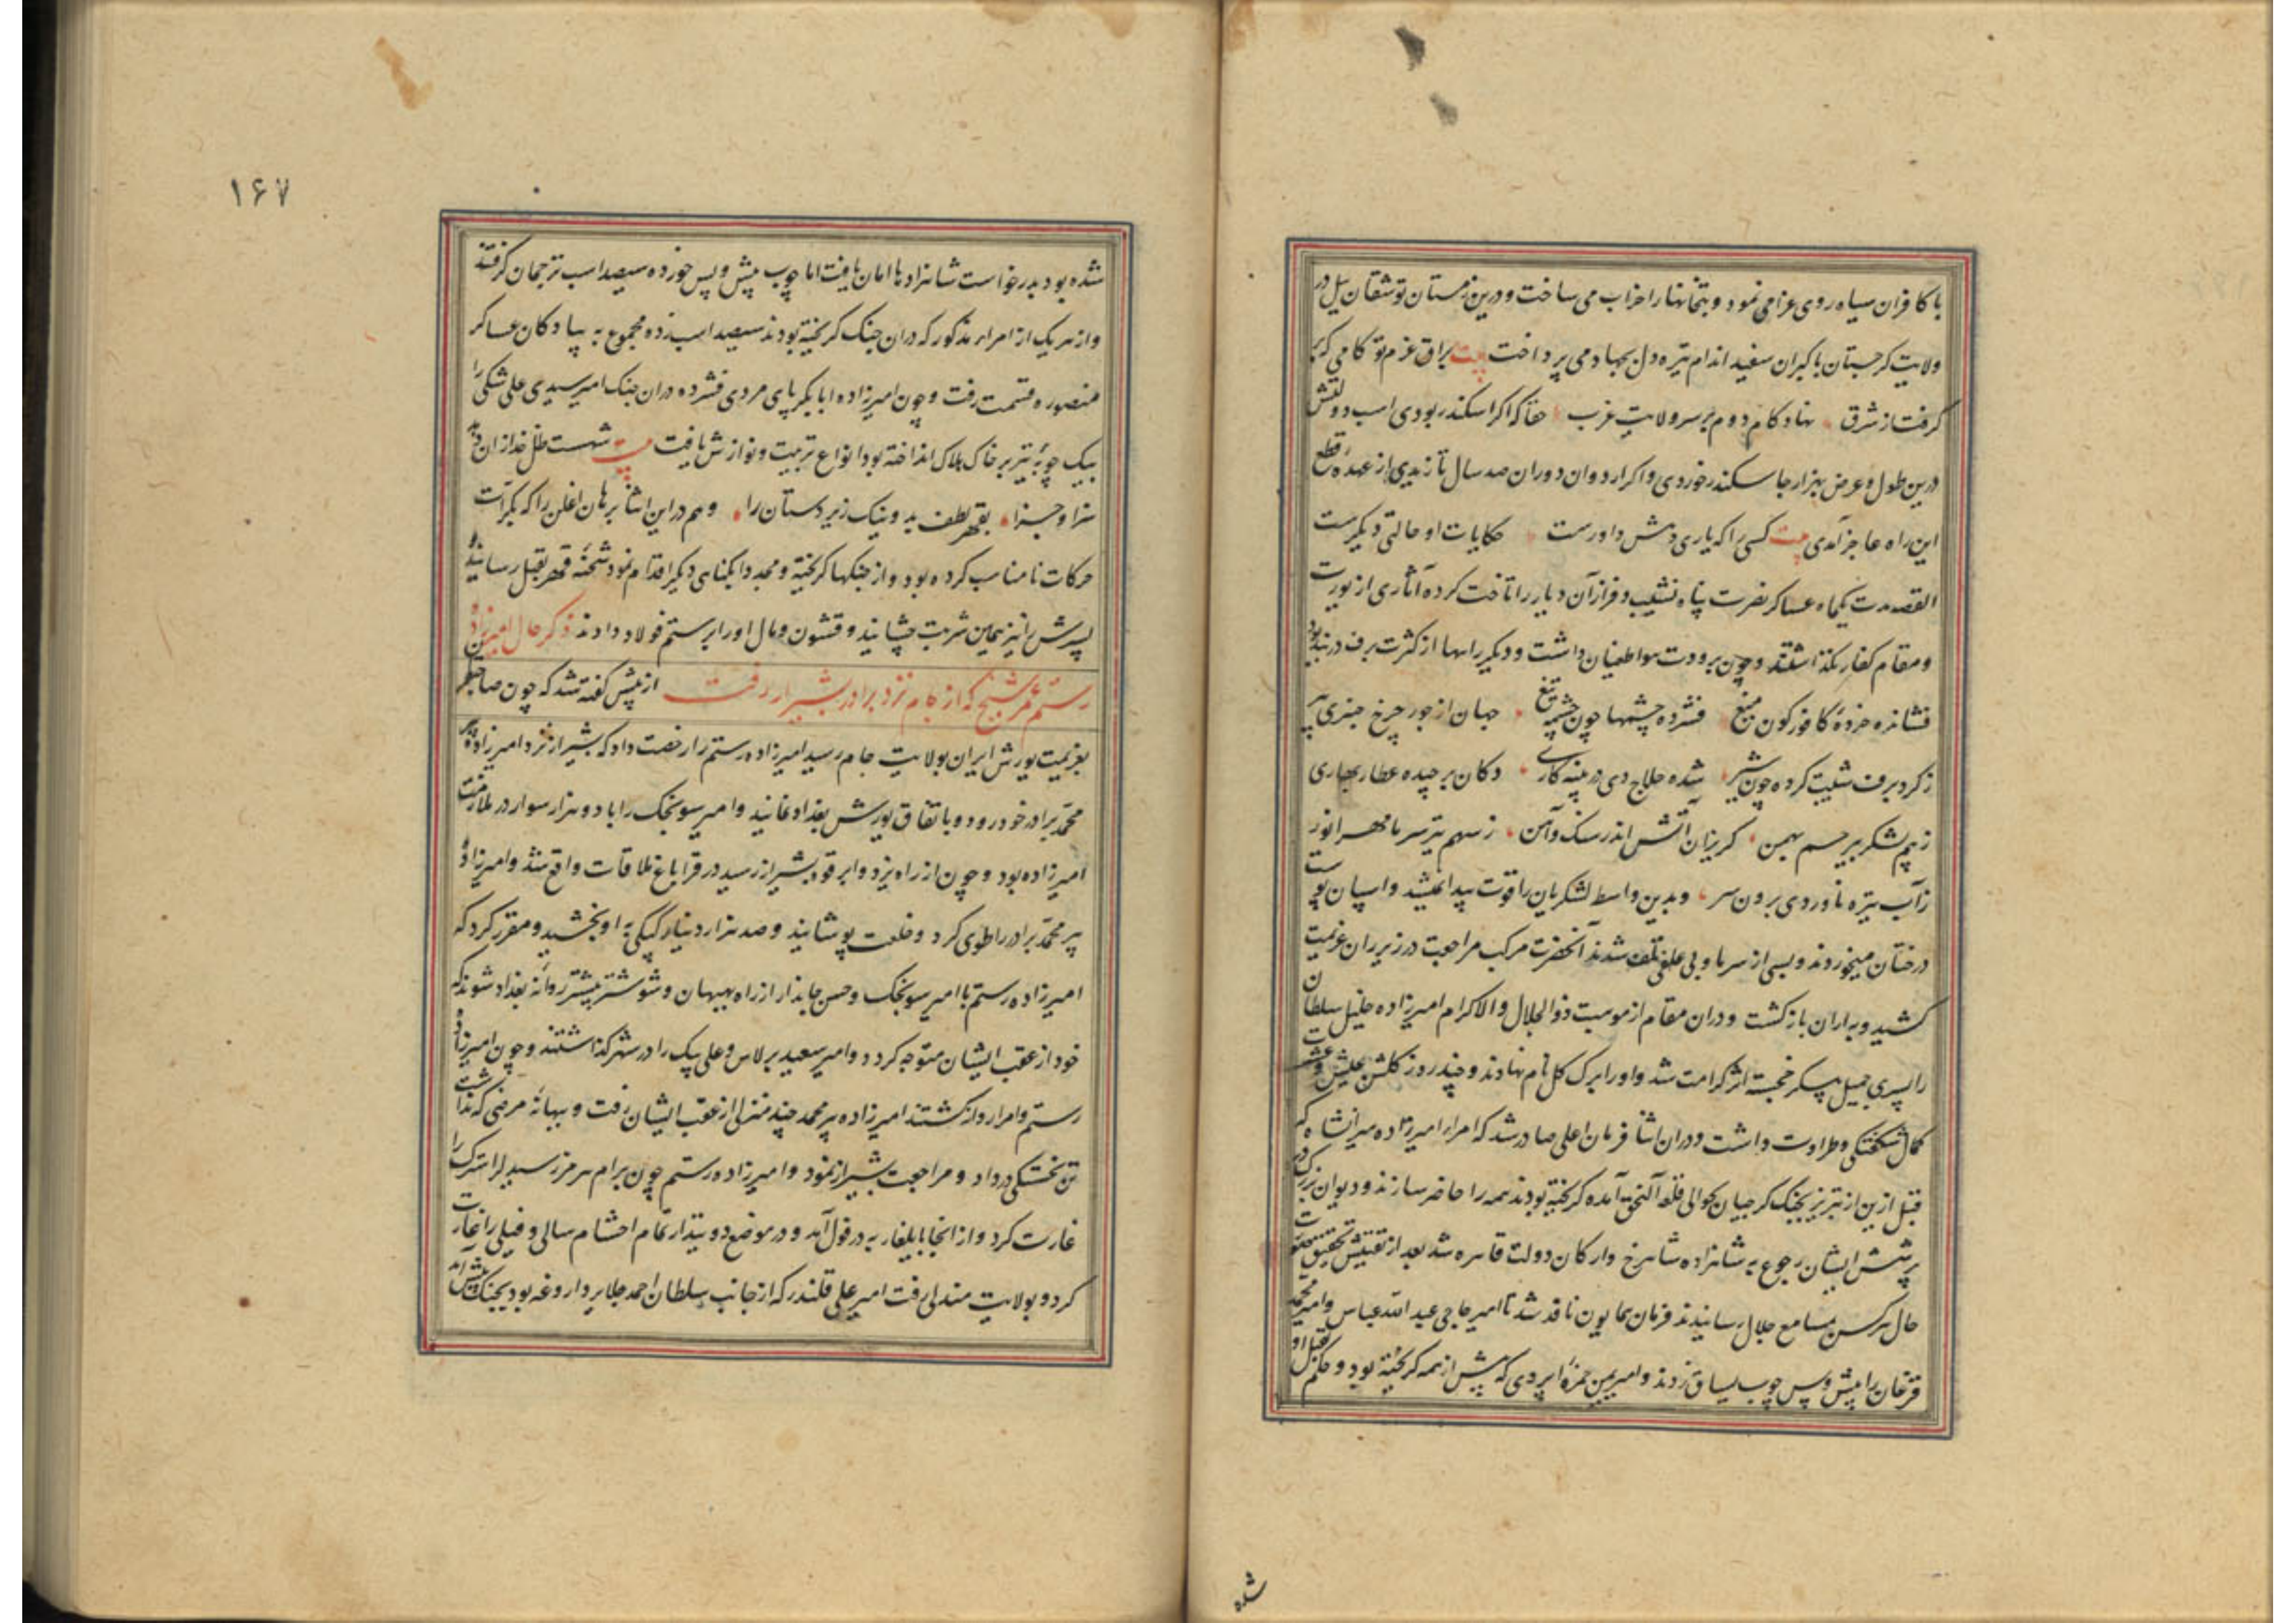 با کافران سیاه روی غزا می نمود و بتخانها را خراب می ساخت و درین زمستان توشقان ئیل در
ولایت گرجستان با گبران سفید اندام تیره دل بجهاد می پرداخت بیت براق عزم تو کامی که بر
گرفت از شرق نهاد کام دوم بر سر ولایت غرب حقا که اگر اسکندر بودی اسب دولتش
درین طول و عرض بهزار جا سکندر خوردی و اگر اردوان دوران صد سال تازیدی از عهدهٔ قطع
این راه عاجز آمدی بیت کسی را که یاری دهش داورست حکایات او حالتی دیگرست
القصه مدت یکماه عساکر نصرت پناه نشیب و فراز آن دیار را تاخت کرده آثاری از یورت
و مقام کفار نگذاشتند و چون برودت هوا طغیان داشت و دیگر راهها از کثرت برف دربند بود
فشانده خردهٔ کافور گون میغ فشرده چشمها چون چشمه تیغ جهان از جور چرخ چنبری پیر
ز گرد برف شیب کرده چون شیر شده حلاج دی در پنبه کاری دکان برچیده عطار بهاری
ز بیم لشکر بیرحم بهمن گریزان آتش اندر سنک و آهن ز سهم تیر سرما مهر انور
ز آب تیره ناوردی برون سر و بدین واسطه لشکریان را قوت پیدا نمیشد و اسپان پوست
درختان میخوردند و بسی از سرما و بی علفی تلف شدند آنحضرت مرکب مراجعت در زیر ران عزیمت
کشید و بداران بازگشت و دران مقام از موهبت ذوالجلال والاکرام امیرزاده خلیل سلطان
را پسری جمیل پیکر خجسته اثر کرامت شد و او را برک کل نام نهادند و چند روز گلشن عیش و عشرت
کمال شکفتگی و طراوت داشت و دران اثنا فرمان اعلی صادر شد که امراء امیرزاده میرانشاه که
قبل ازین از تبریز بجنک گرجیان بحوالی قلعه آلنجق آمده گریخته بودند همه را حاضر سازند و دیوان بزرک در
پرشش ایشان رجوع به شاهزاده شاهرخ و ارکان دولت قاهره شد بعد از تفتیش تحقیق صورت
حال هر کس بمسامع جلال رسانیدند فرمان همایون نافذ شد تا امیر حاجی عبدالله عباس و امیر محمد
قزغان را پیش و پس چوب یساق زدند و امیر یمن حمزهٔ اپردی که پیش از همه گریخته بود و حکم بقتل او
شده
۱۶۷
شده بود بدرخواست شاهزادها امان یافت اما چوب پیش و پس خورده سیصد اسب ترجمان گرفتند
و از هر یک از امراء مذکور که دران جنک گریخته بودند سیصد اسب زده مجموع به پیادگان عساکر
منصوره قسمت رفت و چون امیرزاده ابابکر پای مردی فشرده دران جنک امیر سیدی علی شکی را
بیک چوبهٔ تیر بر خاک هلاک انداخته بود انواع تربیت و نوازش یافت بیت شهست ظل خدا زان دهد
سزا و جزا بقهر و لطف بد و نیک زیر دستان را و هم در این اثنا برهان اغلن را که بکرات
حرکات نامناسب کرده بود و از جنکها گریخته و مجددا بگناهی دیگر اقدام نمود شحنهٔ قهر بقتل رسانید و
پسرش را نیز همان شربت چشانید و قشون و مال او را برستم فولاد دادند ذکر حال امیرزاده
رستم عمر شیخ که از جام نزد برادر بشیراز رفت از پیش گفته شد که چون صاحبقران
بعزیمت یورش ایران بولایت جام رسید امیرزاده رستم را رخصت داد که بشیراز نزد امیرزاده پیر
محمد برادر خود رود و باتفاق یورش بغداد نمایند و امیر سونجک را با دو هزار سوار در ملازمت
امیرزاده بود و چون از راه یزد و ابرقوه بشیراز رسید در قراباغ ملاقات واقع شد و امیرزاده
پیر محمد برادر را طوی کرد و خلعت پوشانید و صد هزار دینار کپکی به او بخشید و مقرر کرد که
امیرزاده رستم با امیر سونجک و حسن جاندار از راه بهبهان و شوشتر پیشتر روانهٔ بغداد شوند که
خود از عقب ایشان متوجه گردد و امیر سعید برلاس و علی بیک را در شهر گذاشتند و چون امیرزاده
رستم و امرا روان گشتند امیرزاده پیر محمد چند منزلی از عقب ایشان رفت و ببهانهٔ مرضی که نداشت
تن بخستگی درداد و مراجعت بشیراز نمود و امیرزاده رستم چون برام هرمز رسید لر استرک را
غارت کرد و از انجا بایلغار به دزفول آمد و در موضع دو بندار تمام احشام سالی و فیلی را غارت
کرد و بولایت مندلی رفت امیر علی قلندر که از جانب سلطان احمد جلایر داروغه بود بجنک پیش آمد